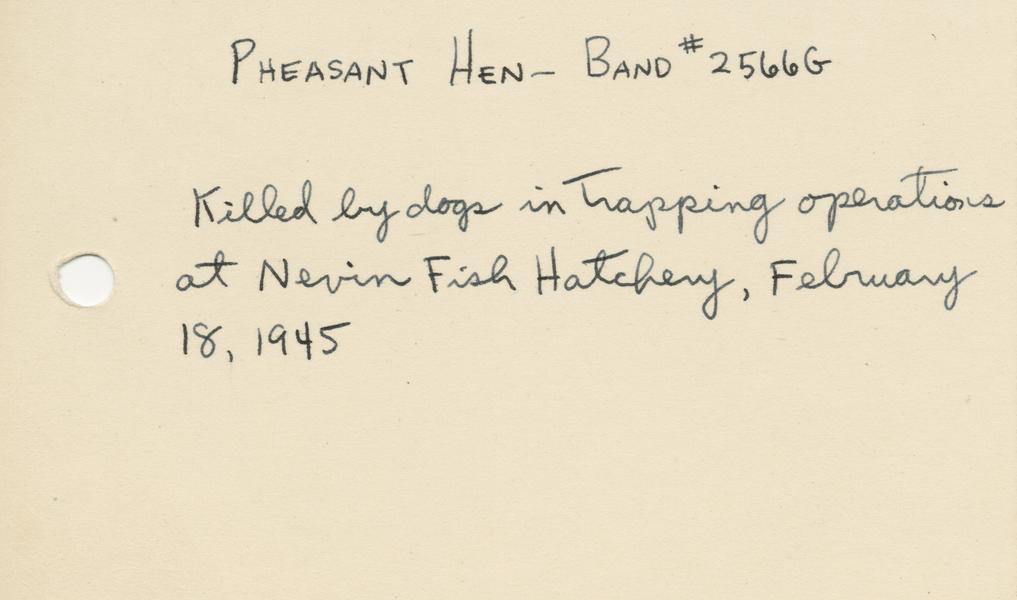 PHEASANT HEN- BAND #2566G
Killed by dogs in Trapping operations
at Nevin Fish Hatchery, February
18, 1945